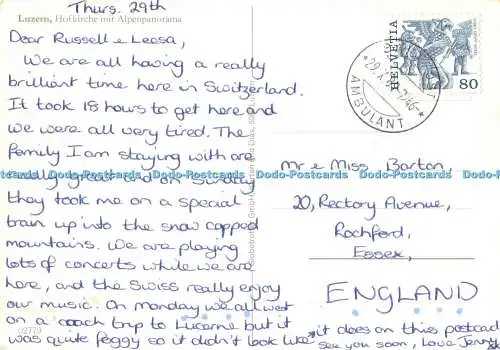 Thurs. 29th
Luzern, Hofkirche mit Alpenpanorama
Dear Russell e Leesa,
We are all having a really
brilliant time here in Switzerland.
It took 18 hours to get here and
we were all very tired. The
family I am staying with are
really great and on Sunday
they took me on a special
train up into the snow capped
mountains. We are playing
lots of concerts while we are
here, and the Swiss really enjoy
our music. On Monday we all went
on a coach trip to Lucerne but it
was quite foggy so it didn't look like
it does on this postcard
see you soon, Love Jenny
02779
HELVETIA
80
AMBULANT
Mr e Miss Barton,
20, Rectory Avenue,
Rochford,
Essex,
ENGLAND
Dodo-Postcards Dodo-Postcards Dodo-Postcards Dodo-Postcards Dodo-Postcards